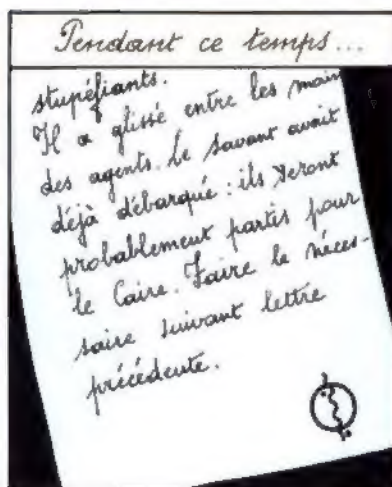 Pendant ce temps...
stupéfiants.
Il a glissé entre les main
des agents. Le savant avait
déjà débarqué : ils seront
probablement partis pour
le Caire. Faire le néces-
saire suivant lettre
précédente.